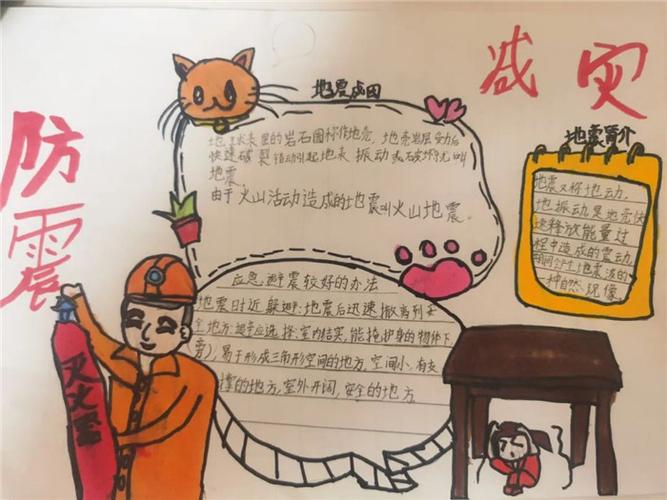 防震
减灾
地震成因
地球表里的岩石圈称作地壳,地壳岩层受力后
快速破裂错动引起地表振动或破坏就叫
地震。
由于火山活动造成的地震叫火山地震。
地震简介
地震又称地动,
地振动是地壳快
速释放能量过
程中造成的震动,
期间会产生地震波的
一种自然现像。
应急避震较好的办法
地震时近躲避;地震后迅速撤离到安
全地方.避震应选择:室内结实,能掩护身的物体下
(旁),易于形成三角形空间的地方,空间小、有支
撑的地方,室外开阔,安全的地方
灭火器